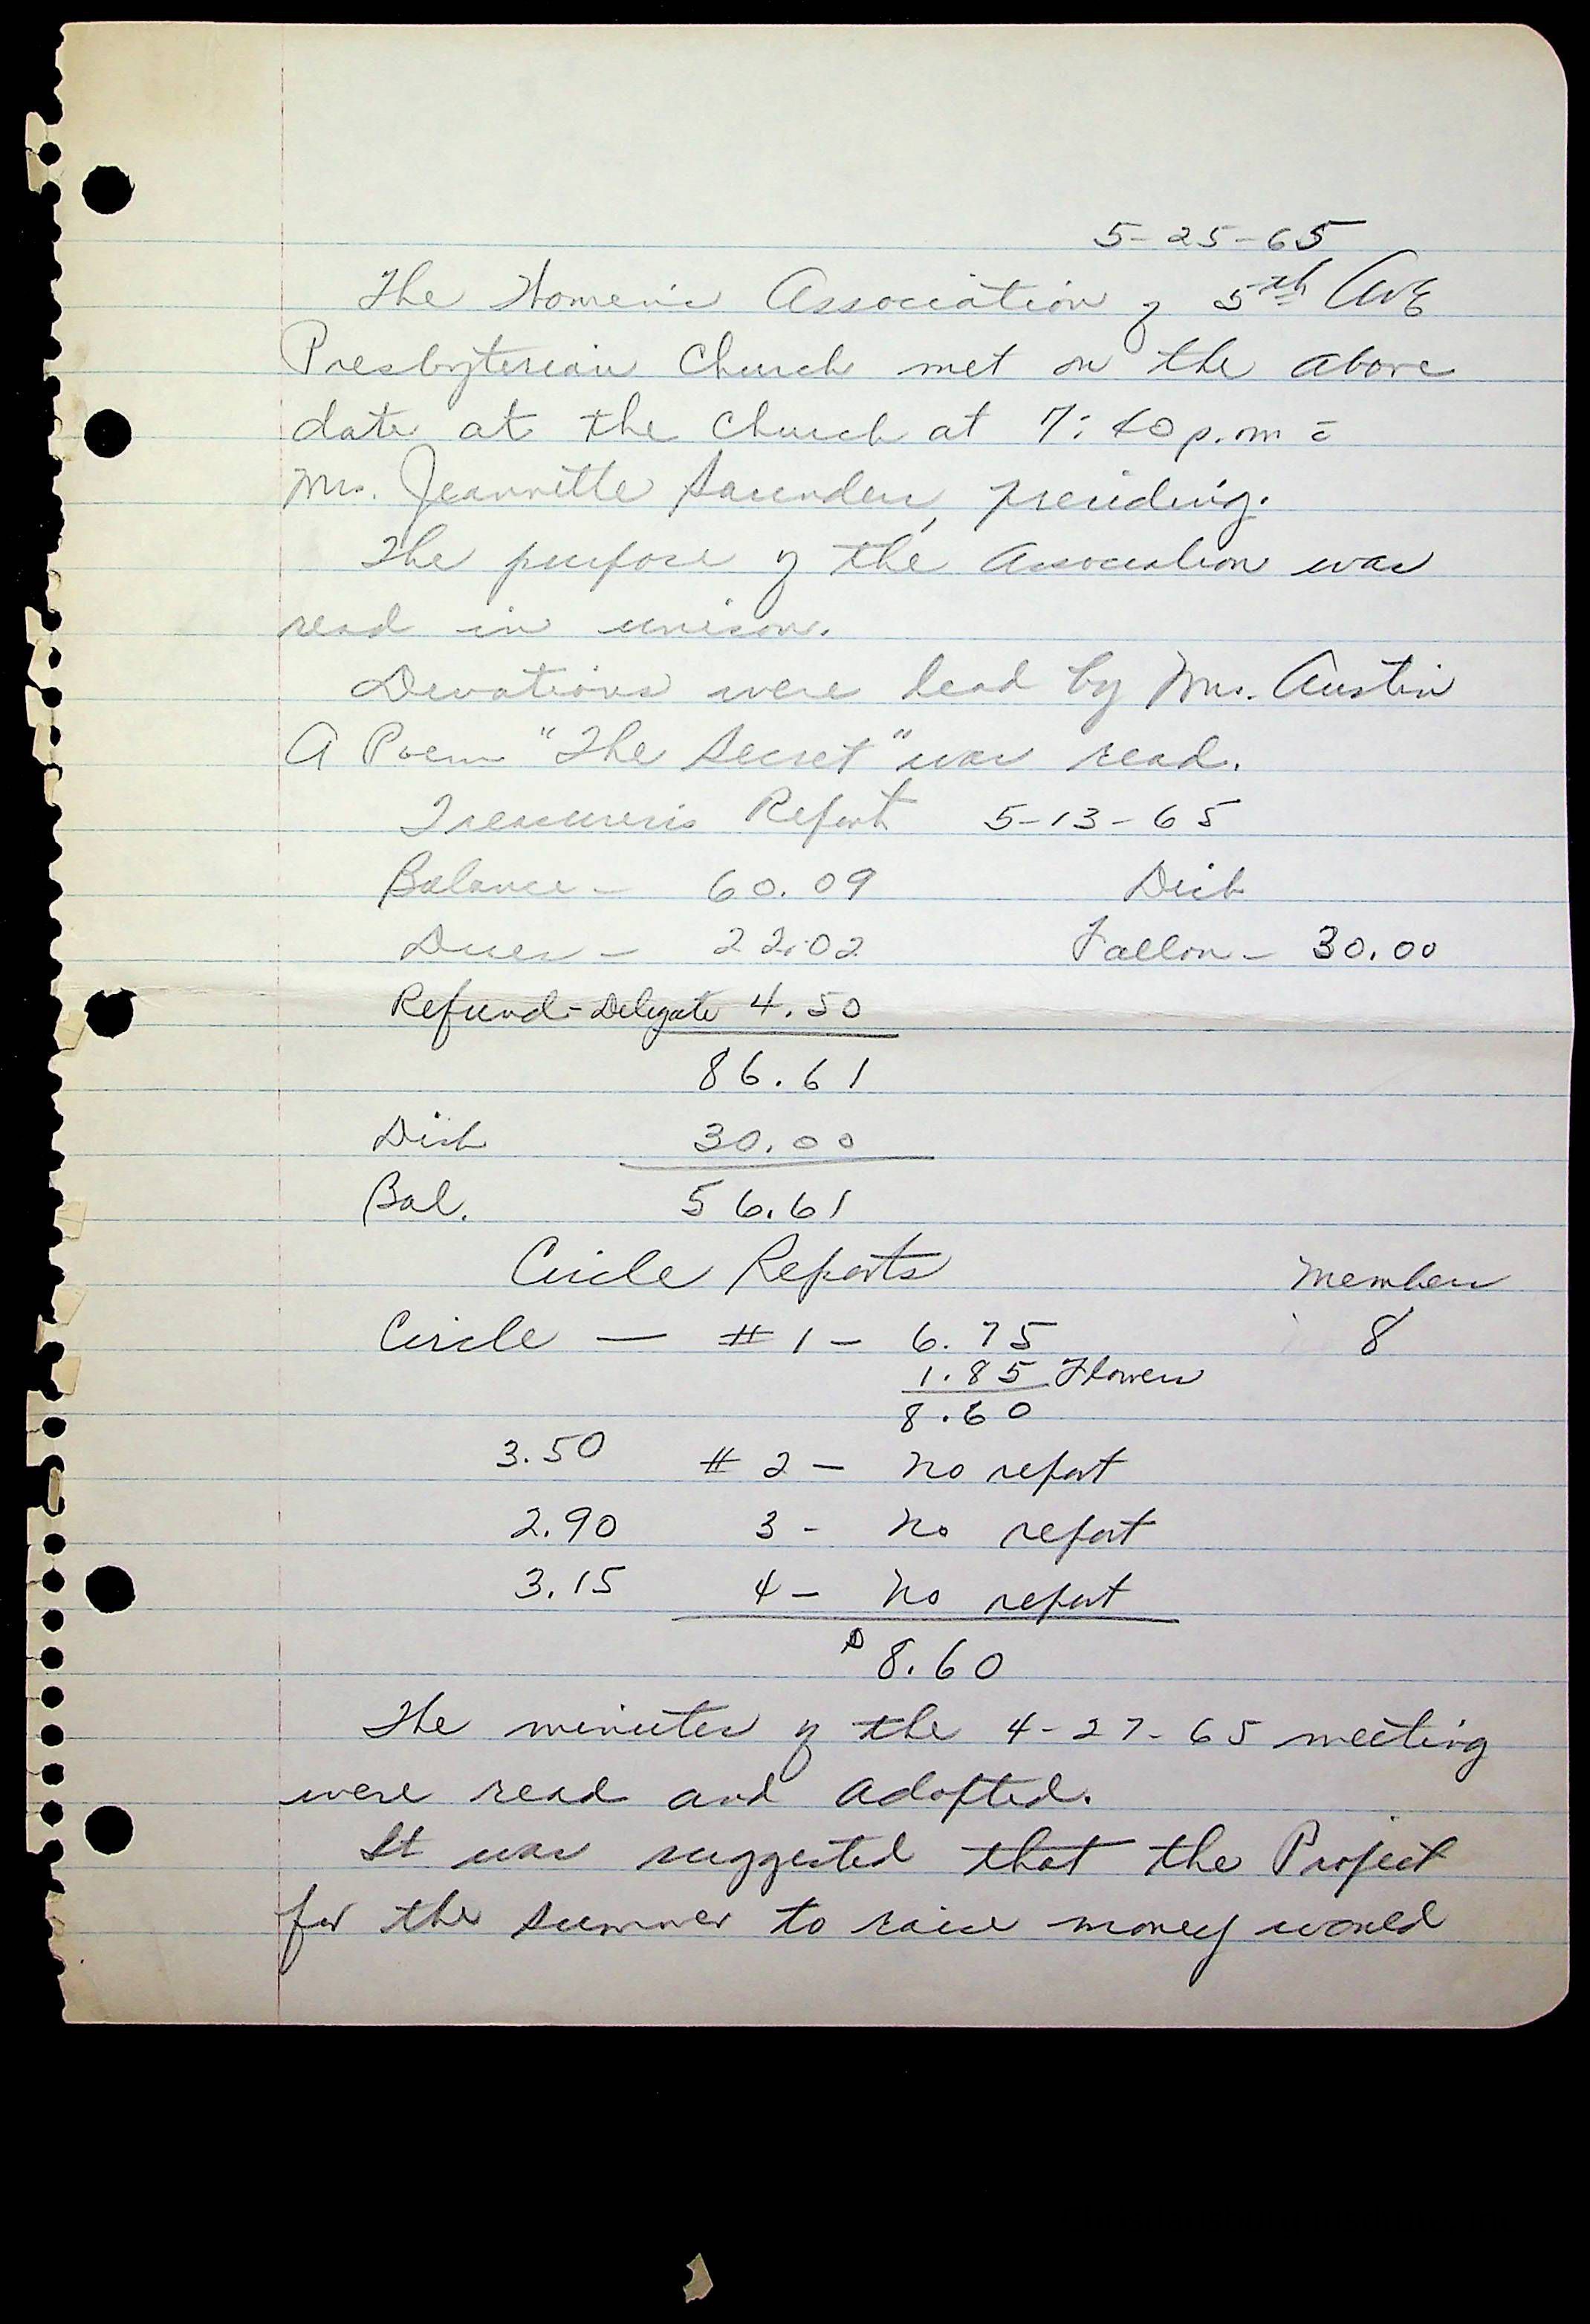 5-25-65
The Women's Association of 5th Ave
Presbyterian Church met on the above
date at the Church at 7:40 p.m c̄
Mrs. Jeannette Saunders, presiding.
The purpose of the Association was
read in unison.
Devotions were lead by Mrs. Austin
A Poem "The Secret" was read.
Treasurer's Report 5-13-65
Balance - 60.09 Disb
Dues - 22.02 Fallon - 30.00
Refund - Delegate 4.50
86.61
Disb 30.00
Bal. 56.61
Circle Reports Members
Circle — # 1 - 6.75 8
1.85 Flowers
8.60
3.50 # 2 - No report
2.90 3 - No report
3.15 4 - No report
$ 8.60
The minutes of the 4-27-65 meeting
were read and adopted.
It was suggested that the Project
for the summer to raise money would